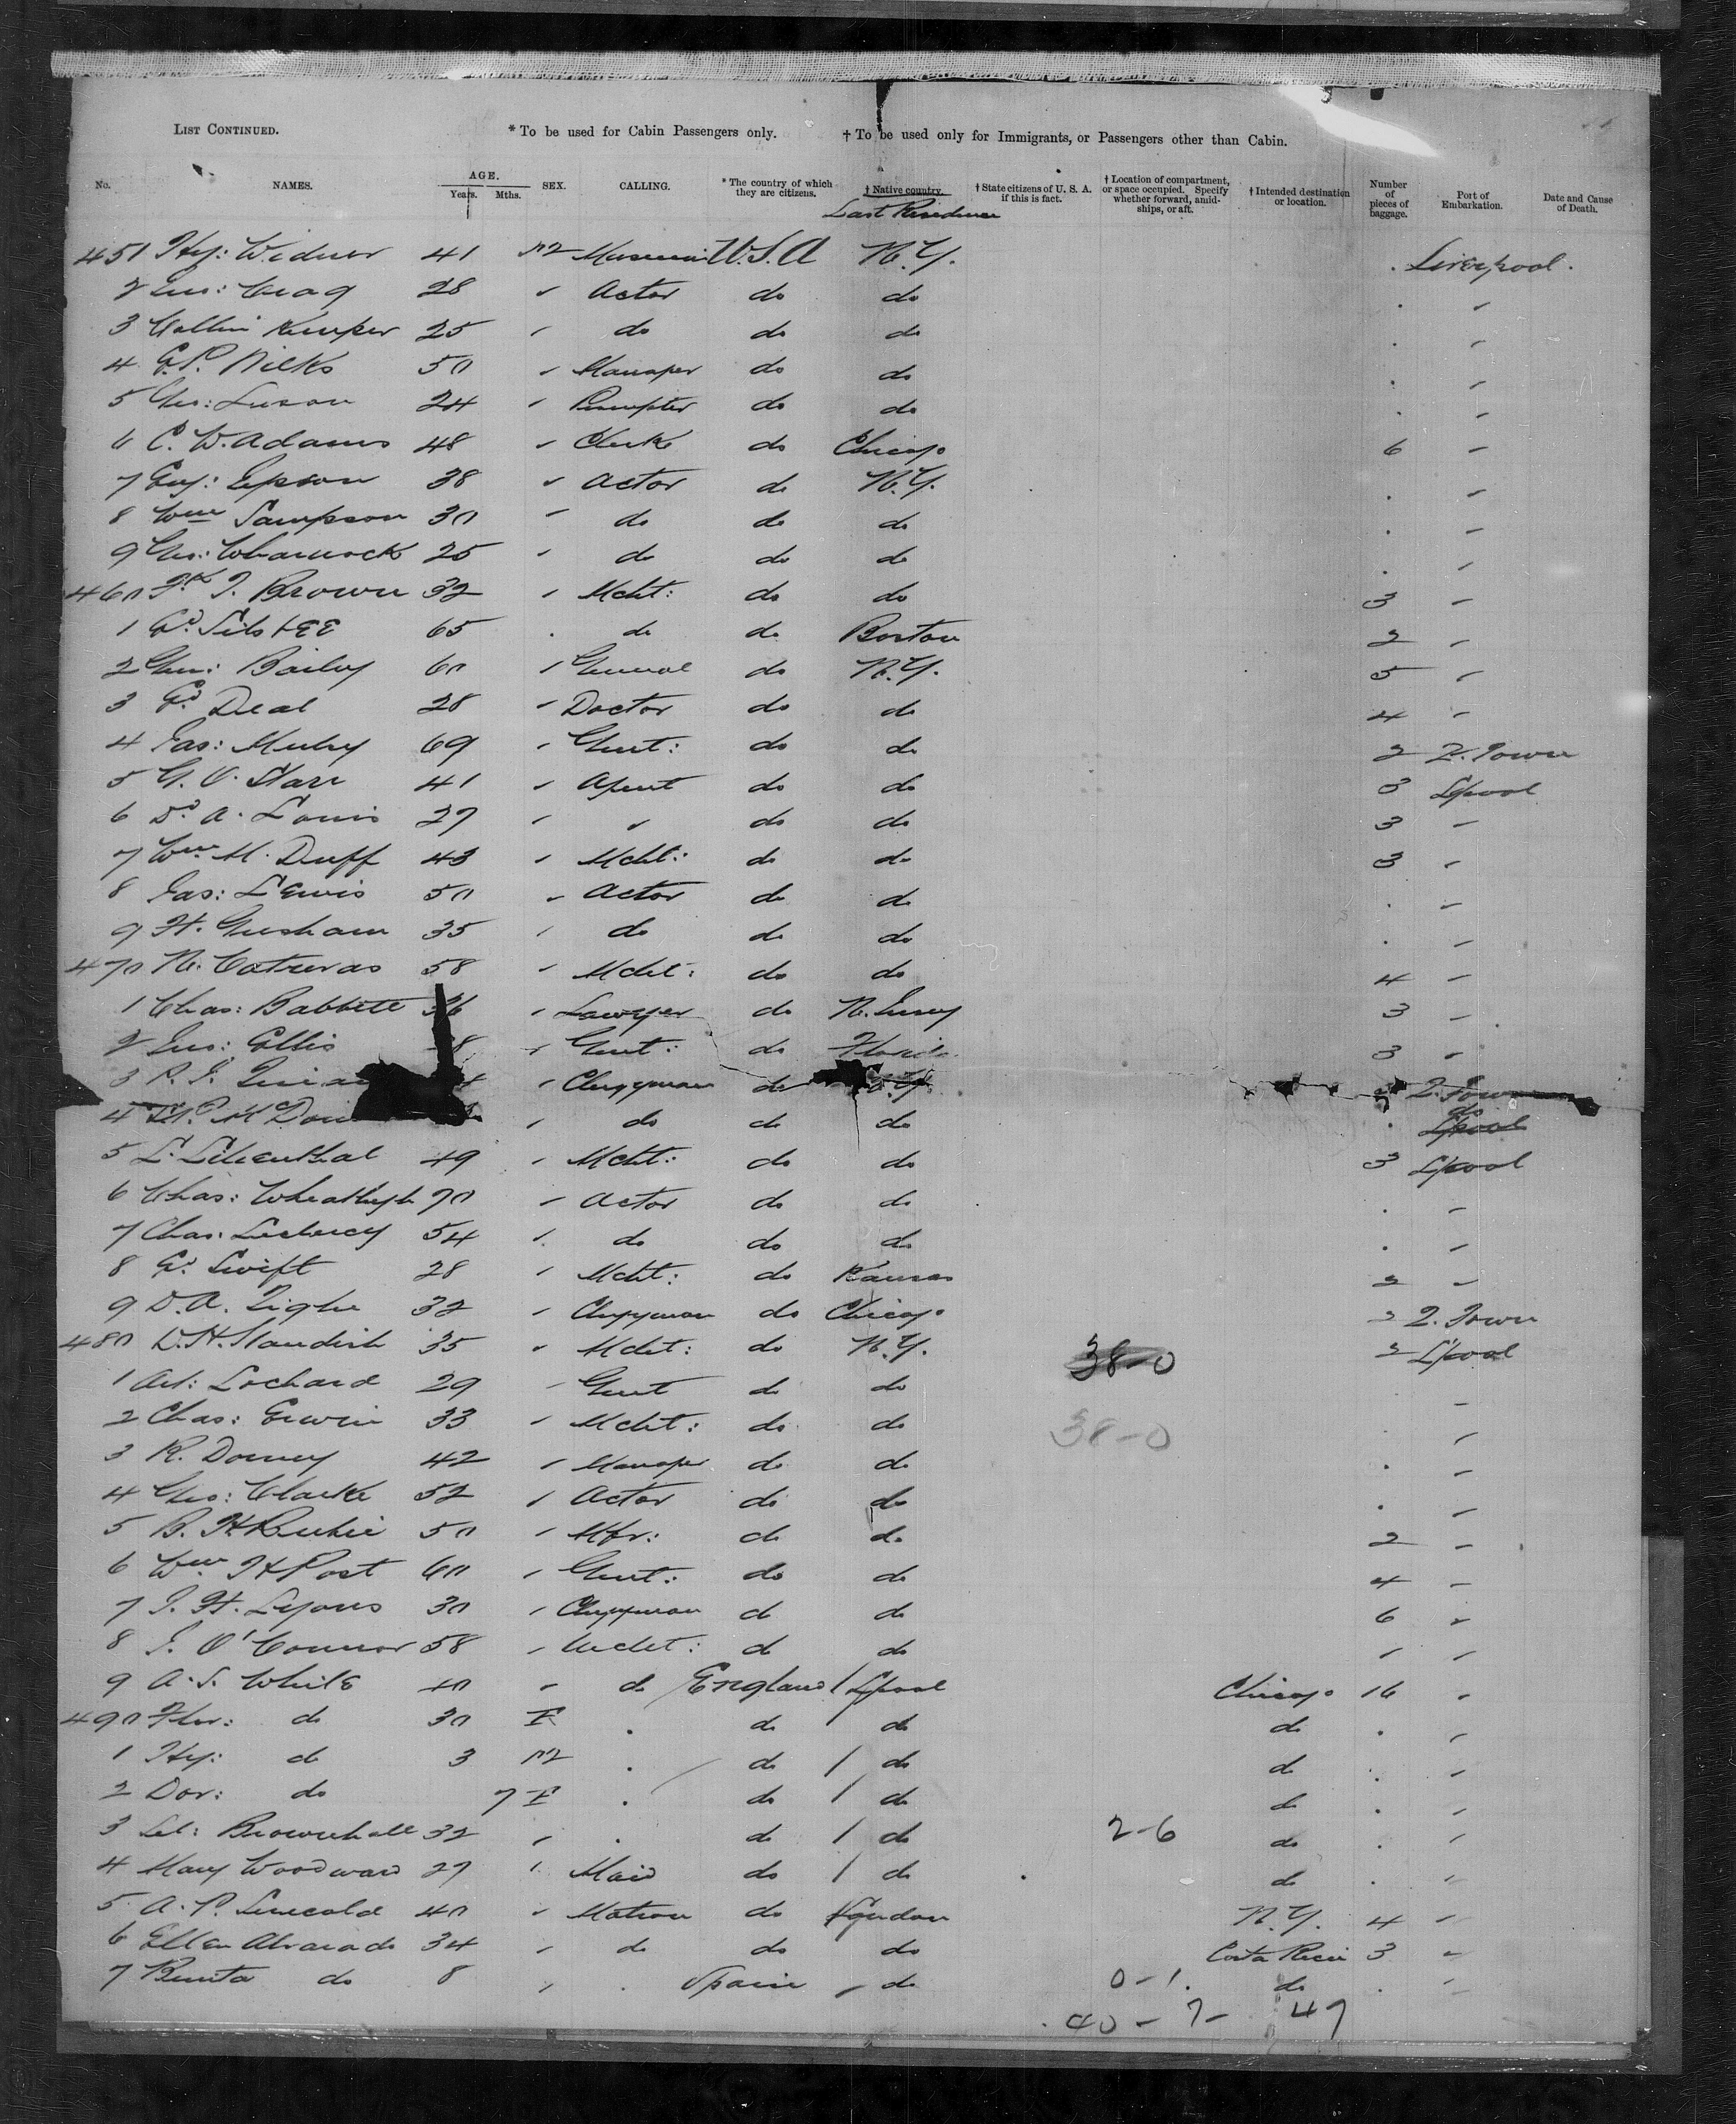 LIST CONTINUED. * To be used for Cabin Passengers only. † To be used only for Immigrants, or Passengers other than Cabin.
No. NAMES. AGE. Years. Mths. SEX. CALLING. * The country of which they are citizens. † Native country. Last Residence † State citizens of U. S. A. if this is fact. † Location of compartment, or space occupied. Specify whether forward, amidships, or aft. † Intended destination or location. Number of pieces of baggage. Port of Embarkation. Date and Cause of Death.
451 Hy: Widmer 41 M U.S.A N.Y. Liverpool.
2 28 " Actor do do "
3 Collin Kemper 25 " do do do "
4 G.P. Wilks 50 " Manager do do "
5 24 " Prompter do do "
6 C. W. Adams 48 " Clerk do Chicago 6 "
7 Eug: Jepson 38 " Actor do N.Y. "
8 Wm Sampson 30 " do do do "
9 Geo: Wharnock 25 " do do do "
460 Fk T. Brown 32 " Mcht: do do 3 "
1 Silstee 65 " do do Boston 2 "
2 Bailey 60 " General do N.Y. 5 "
3 Deal 28 " Doctor do do 4 "
4 Jas: 69 " Gent: do do 2 Q. Town
5 G. O. Starr 41 " Agent do do 3 L'pool
6 A. 27 " " do do 3 "
7 Wm M. Duff 43 " Mcht: do do 3 "
8 Jas: Lewis 50 " Actor do do "
9 H. Gresham 35 " do do do "
470 N. Catrevas 58 " Mcht: do do 4 "
1 Chas: Babbitt 36 " Lawyer do N. Jersey 3 "
2 Jno: Ellis 8 " Gent: do Florida 3 "
3 P. J. 4 " Clergyman do N.Y. Q. Town
4 McDon " do do do do L'pool
5 L. Lilienthal 49 " Mcht: do do 3 L'pool
6 Chas: Wheatleigh 70 " Actor do do "
7 Chas: Leclercq 54 " do do do "
8 Swift 28 " Mcht: do Kansas 2 "
9 D. A. Tighe 32 " Clergyman do Chicago 2 Q. Town
480 D. H. Standish 35 " Mcht: do N.Y. 38-0 2 L'pool
1 Art: Lochard 29 " Gent do do "
2 Chas: Erwin 33 " Mcht: do do 38-0 "
3 R. Dorney 42 " Manager do do "
4 Geo: Clarke 52 " Actor do do "
5 B. H. 50 " Mfr: do do 2 "
6 Wm H Post 60 " Gent: do do 4 "
7 J. H. Lyons 30 " Clergyman do do 6 "
8 J. O'Connor 58 " Mcht: do do 1 "
9 A. S. White 40 " do England L'pool Chicago 16 "
490 Flor: do 30 F do do do "
1 Hy: do 3 M do do do "
2 Dor: do 7 F do do do "
3 Brownhall 32 " do do 2-6 do "
4 Mary Woodward 27 " Maid do do do "
5 A. P. 40 " Matron do London N.Y. 4 "
6 Ellen Alvarado 34 " do do do Costa Rica 3 "
7 Benita do 8 " Spain do 0-1. do "
40-7- 47